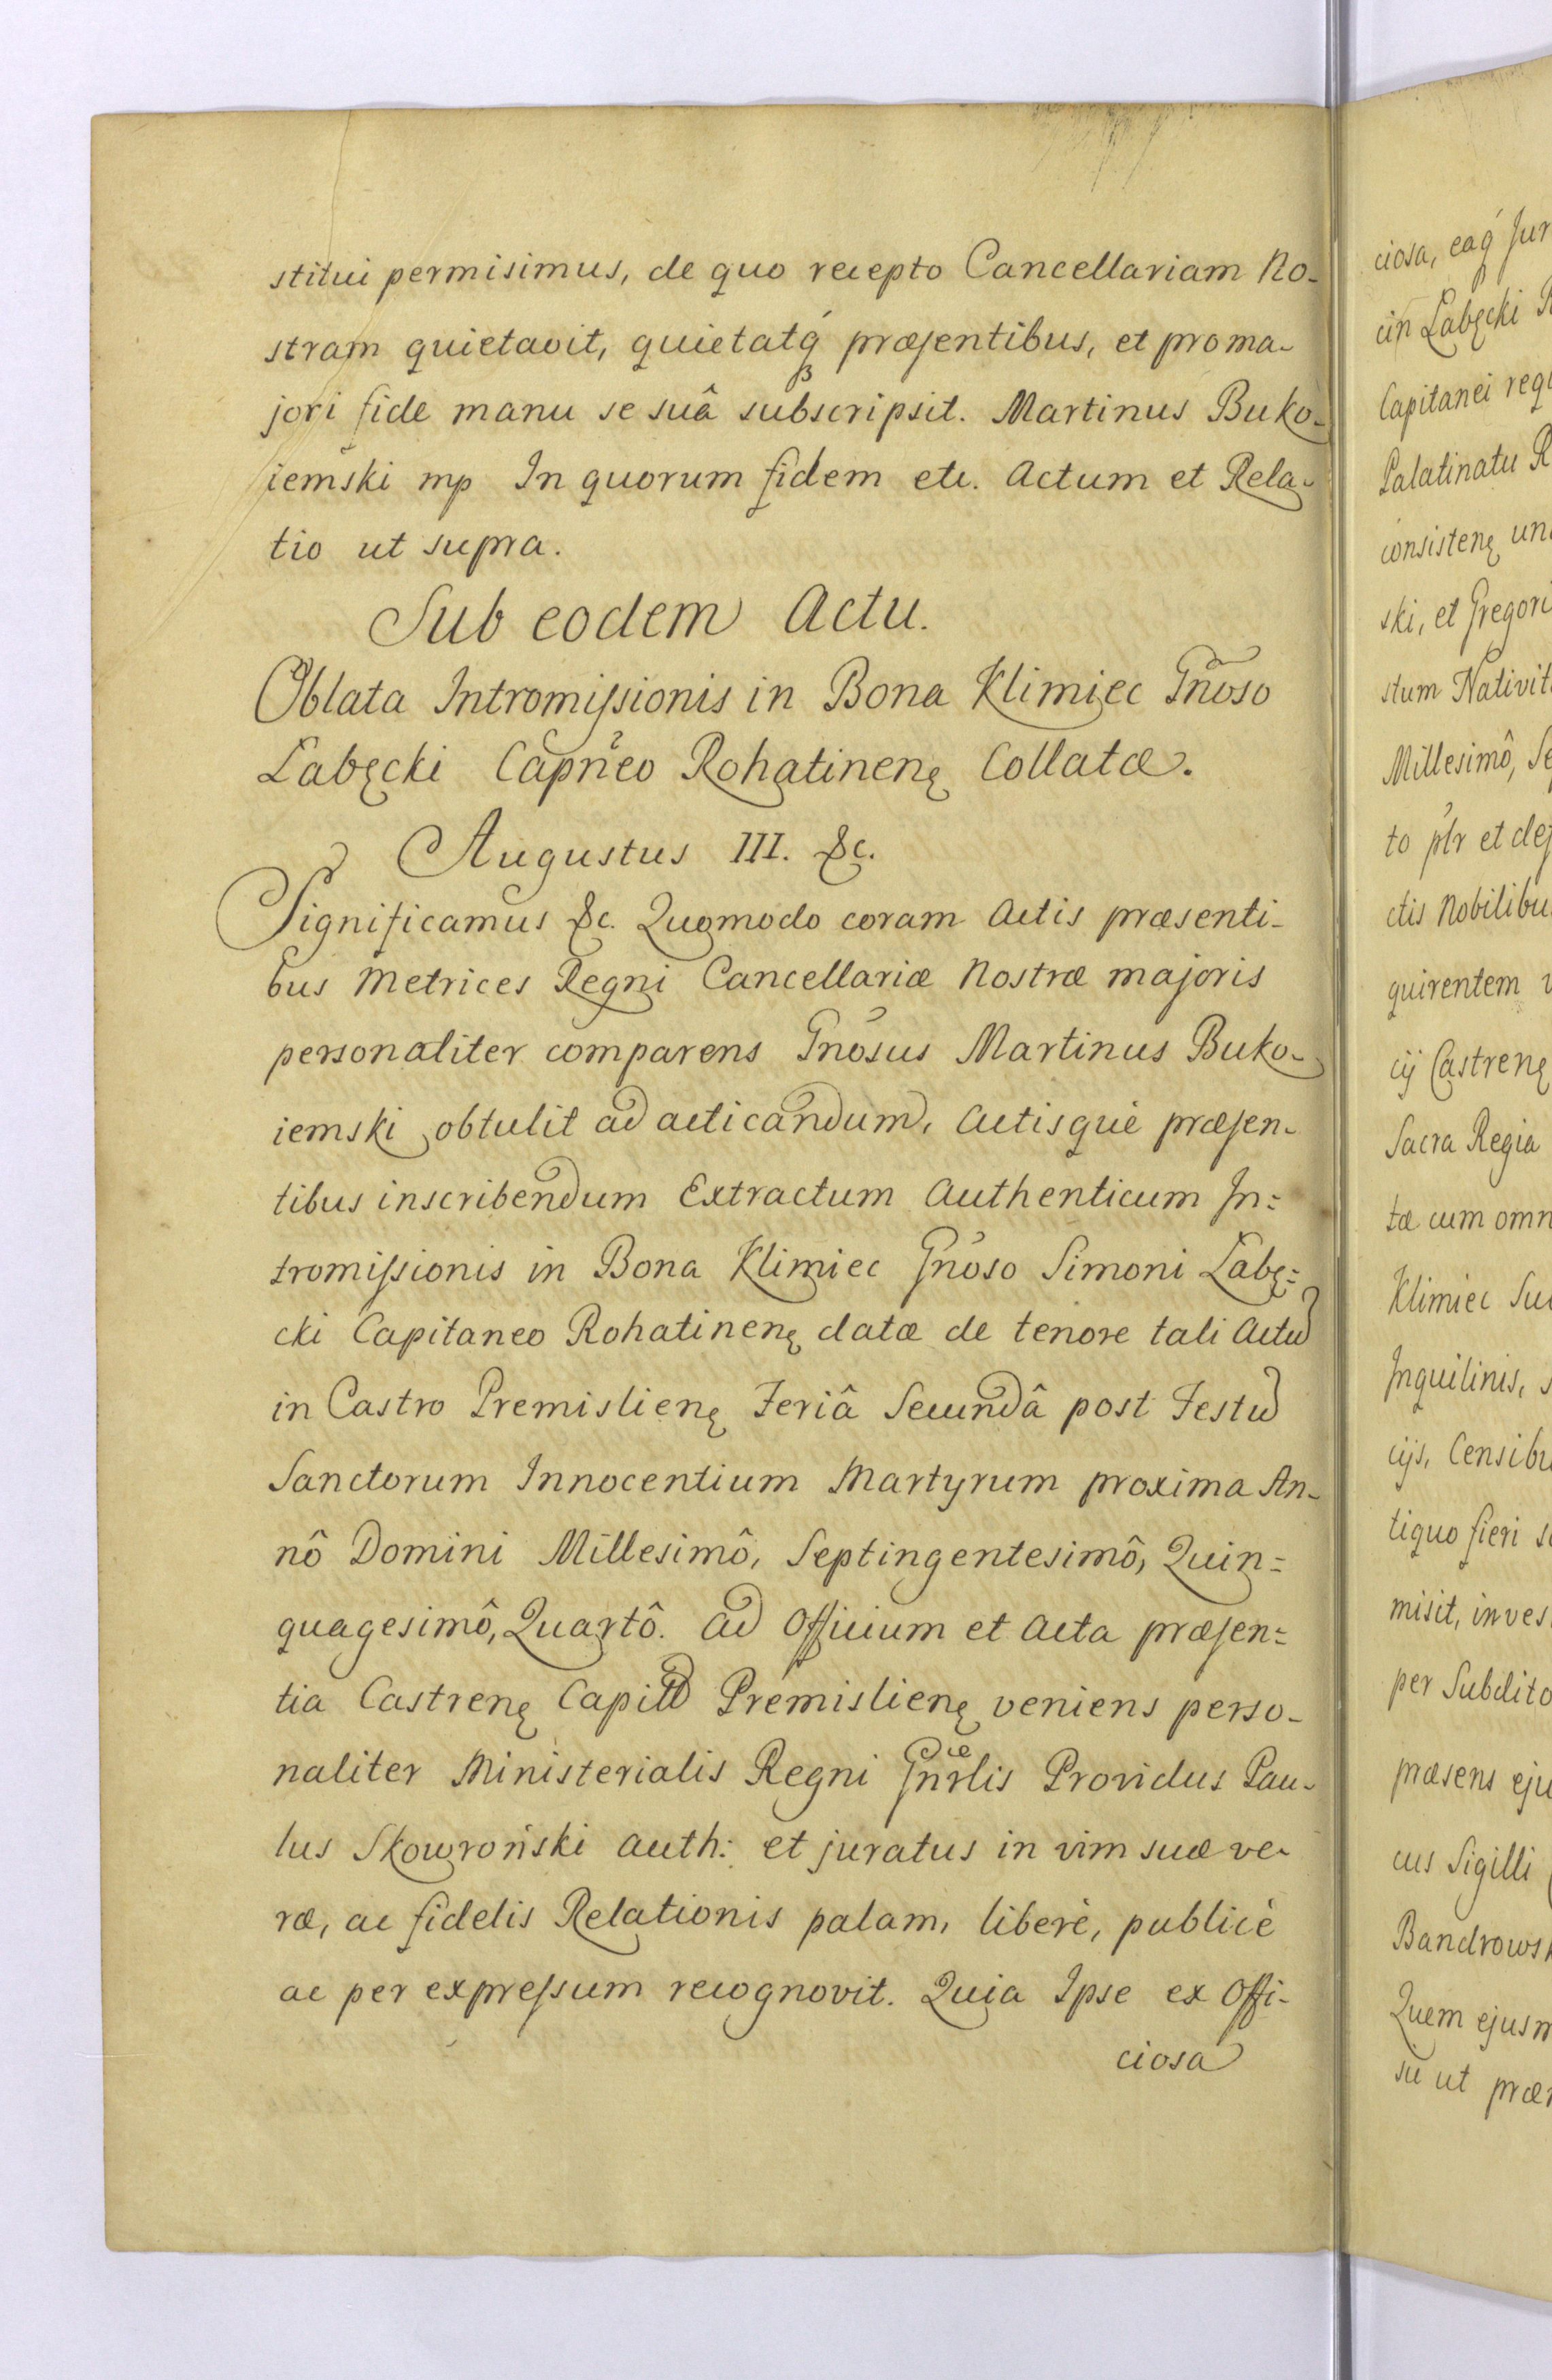 stitui permisimus, de quo recepto Cancellariam No-
stram quietavit, quietatq́ præsentibus, et pro ma-
jori fide manu se suâ subscripsit. Martinus Buko-
iemski mp In quorum fidem etc. Actum et Rela-
tio ut supra.
Sub eodem Actu.
Oblata Intromissionis in Bona Klimiec Gn̄oso
Łabęcki Capn̄eo Rohatinenę Collatæ.
Augustus III. &c.
Significamus &c. Quomodo coram Actis præsenti-
bus Metrices Regni Cancellariæ Nostræ majoris
personaliter comparens Gn̄osus Martinus Buko-
iemski obtulit ad acticandum, Actisquè præsen-
tibus inscribendum Extractum Authenticum In=
tromissionis in Bona Klimiec Gn̄oso Simoni Łabę=
cki Capitaneo Rohatinenę datæ de tenore tali Actũ
in Castro Premislienę Feriâ Secundâ post Festũ
Sanctorum Innocentium Martyrum proxima An-
nô Domini Millesimô, Septingentesimô, Quin=
quagesimô, Quartô. Ad Officium et Acta præsen=
tia Castrenę Capitł Premislienę veniens perso-
naliter Ministerialis Regni Gn̄rlis Providus Pau-
lus Skowroński auth: et juratus in vim suæ ve-
ræ, ac fidelis Relationis palam, liberè, publicè
ac per expressum recognovit. Quia Ipse ex Offi-
ciosa
ciosa, eaq́ Jur
cin Łabęcki
Capitanei requ
Palatinatu R
consistenę un
ski, et Gregori
stum Nativit
Millesimô, Se
to ptr et des
ctis Nobilibu
quirentem
cij Castrenę
Sacra Regia
tæ cum omn
Klimiec Su
Inquilinis, s
cijs, Censibu
tiquo fieri s
misit, inves
per Subdito
præsens eju
cus Sigilli
Bandrowsk
Quem ejusm
su ut præ